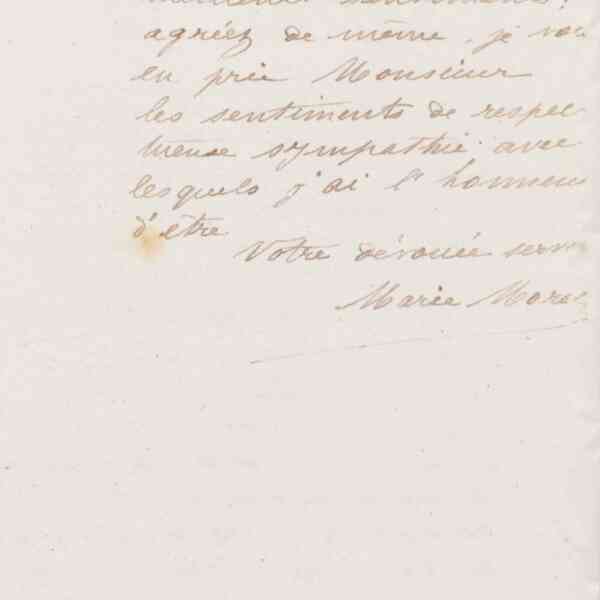 sentiments.
agréez de même, je vou
en prie Monsieur
les sentiments de respec
tueuse sympathie avec
lesquels j'ai l'honneur
d'être
Votre dévouée serv
Marie More